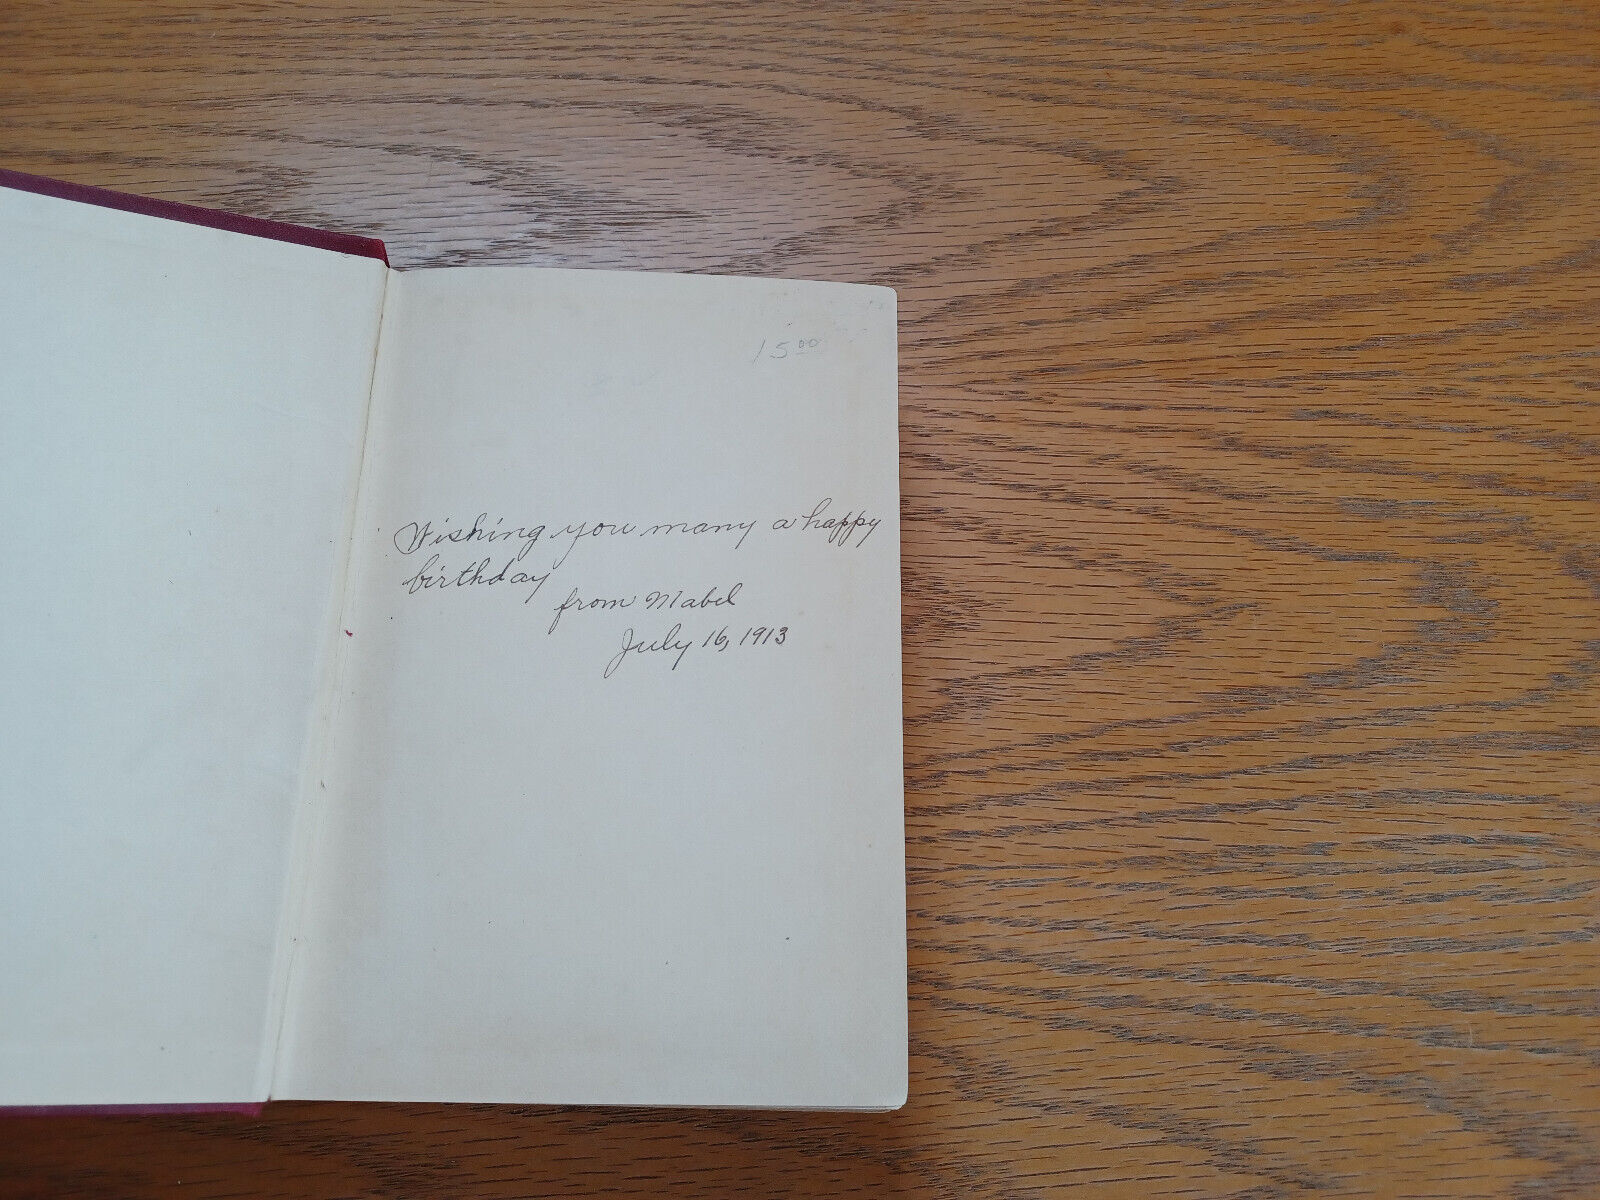 15.00
Wishing you many a happy
birthday
from Mabel
July 16, 1913